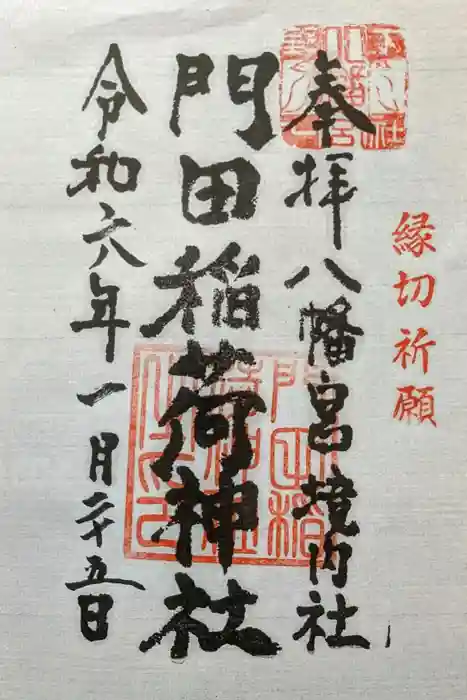 縁切祈願
奉拝 八幡宮境内社
門田稲荷神社
令和六年一月二十五日